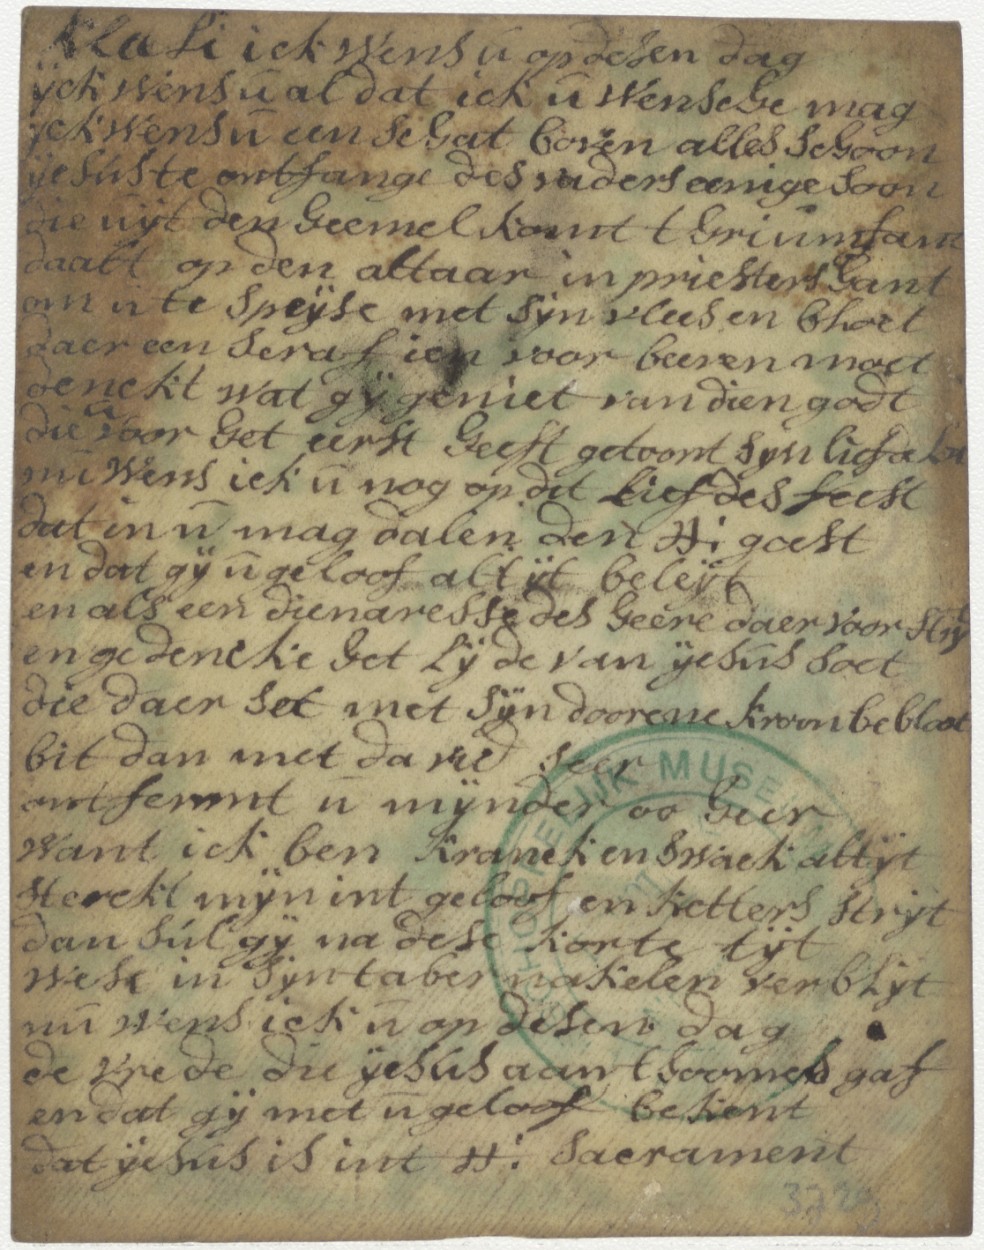 Klasi ick wens u op desen dag
ÿck wens ū al dat ick ū wensche mag
ÿck wens ū een schat boven alles schoon
ÿesus te ontfange des vaders eenige soon
die uÿt den heemel komt t hriumfant
daalt op den altaar in priesters hant
om u te speÿse met sÿn vlees en bloet
daer een serafien voor beeven moet
denckt wat gÿ geniet van dien godt
die voor het eerst heeft getoont sÿn liefde
nū wens ick ū nog op dit liefdes feest
dat in ū mag dalen den H: geest
en dat gÿ ū geloof altÿt beleÿt
en als een dienaresse des heere daer voor strÿ
en gedencke het lÿde van ÿesus soet
die daer set met sÿn doorene kroon bebloet
bit dan met david seer
ontfermt ū mÿnder oo heer
want ick ben kranck en swack altÿt
sterckt mÿn int geloof en ketters strÿt
dan sul gÿ na dese korte tÿt
wese in sÿn tabernakelen verblÿt
nū wens ick ū op desen dag
de vrede die ÿesus aan thoomes gaf
en dat gÿ met ū geloof bekent
dat ÿesus is int H: Sacrament
BISSCHOPPELIJK MUSEUM
3729